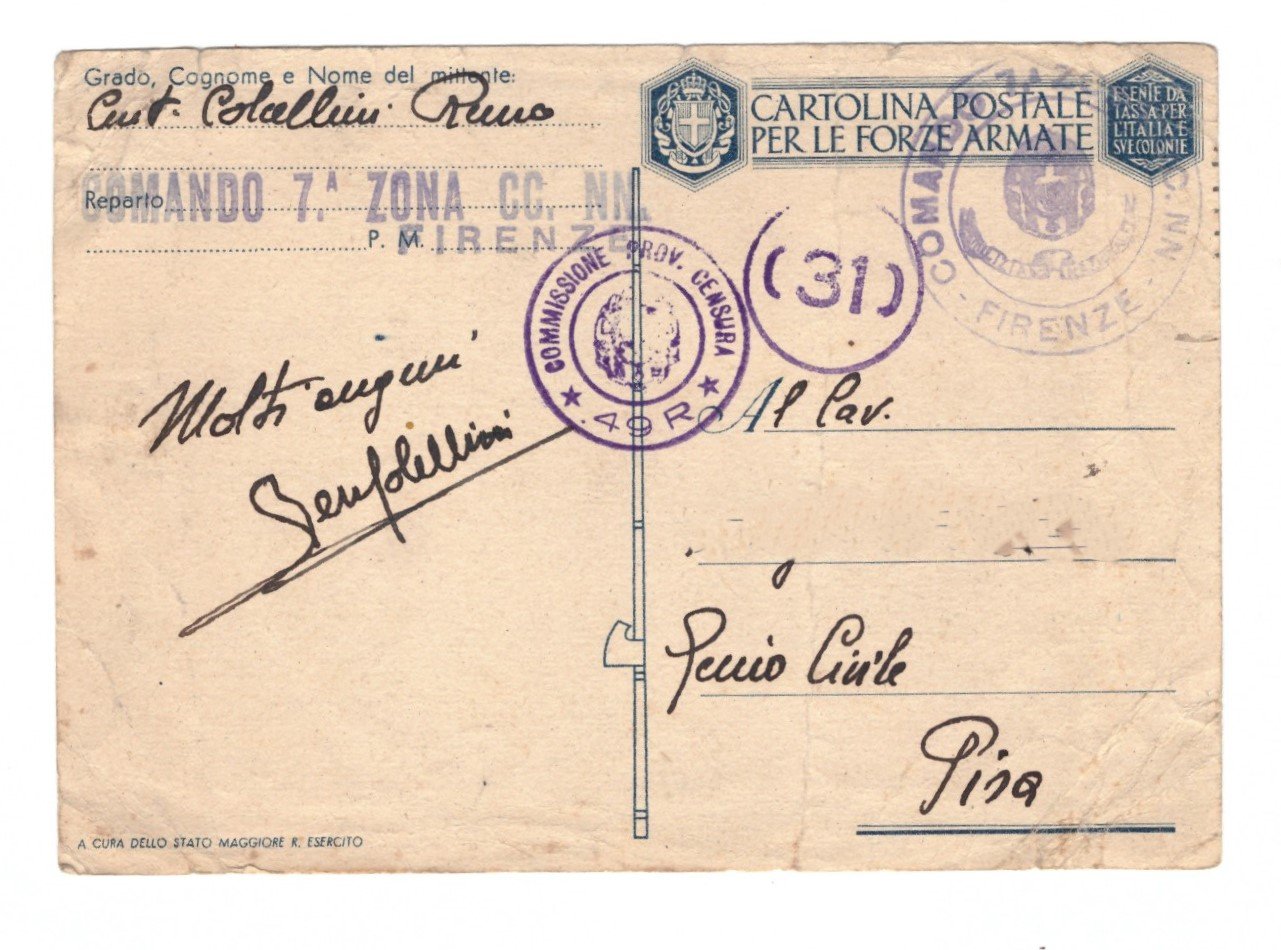 Grado, Cognome e Nome del mittente:
Remo
COMANDO 7.ª ZONA CC. NN.
Reparto
P. M.
FIRENZE
CARTOLINA POSTALE
PER LE FORZE ARMATE
ESENTE DA
TASSA PER
L'ITALIA E
SVE COLONIE
COMANDO 7.ª ZONA CC.NN
- FIRENZE -
COMMISSIONE PROV. CENSURA
49 R
(31)
Molti auguri
Al Cav.
Genio Civile
Pisa
A CURA DELLO STATO MAGGIORE R. ESERCITO